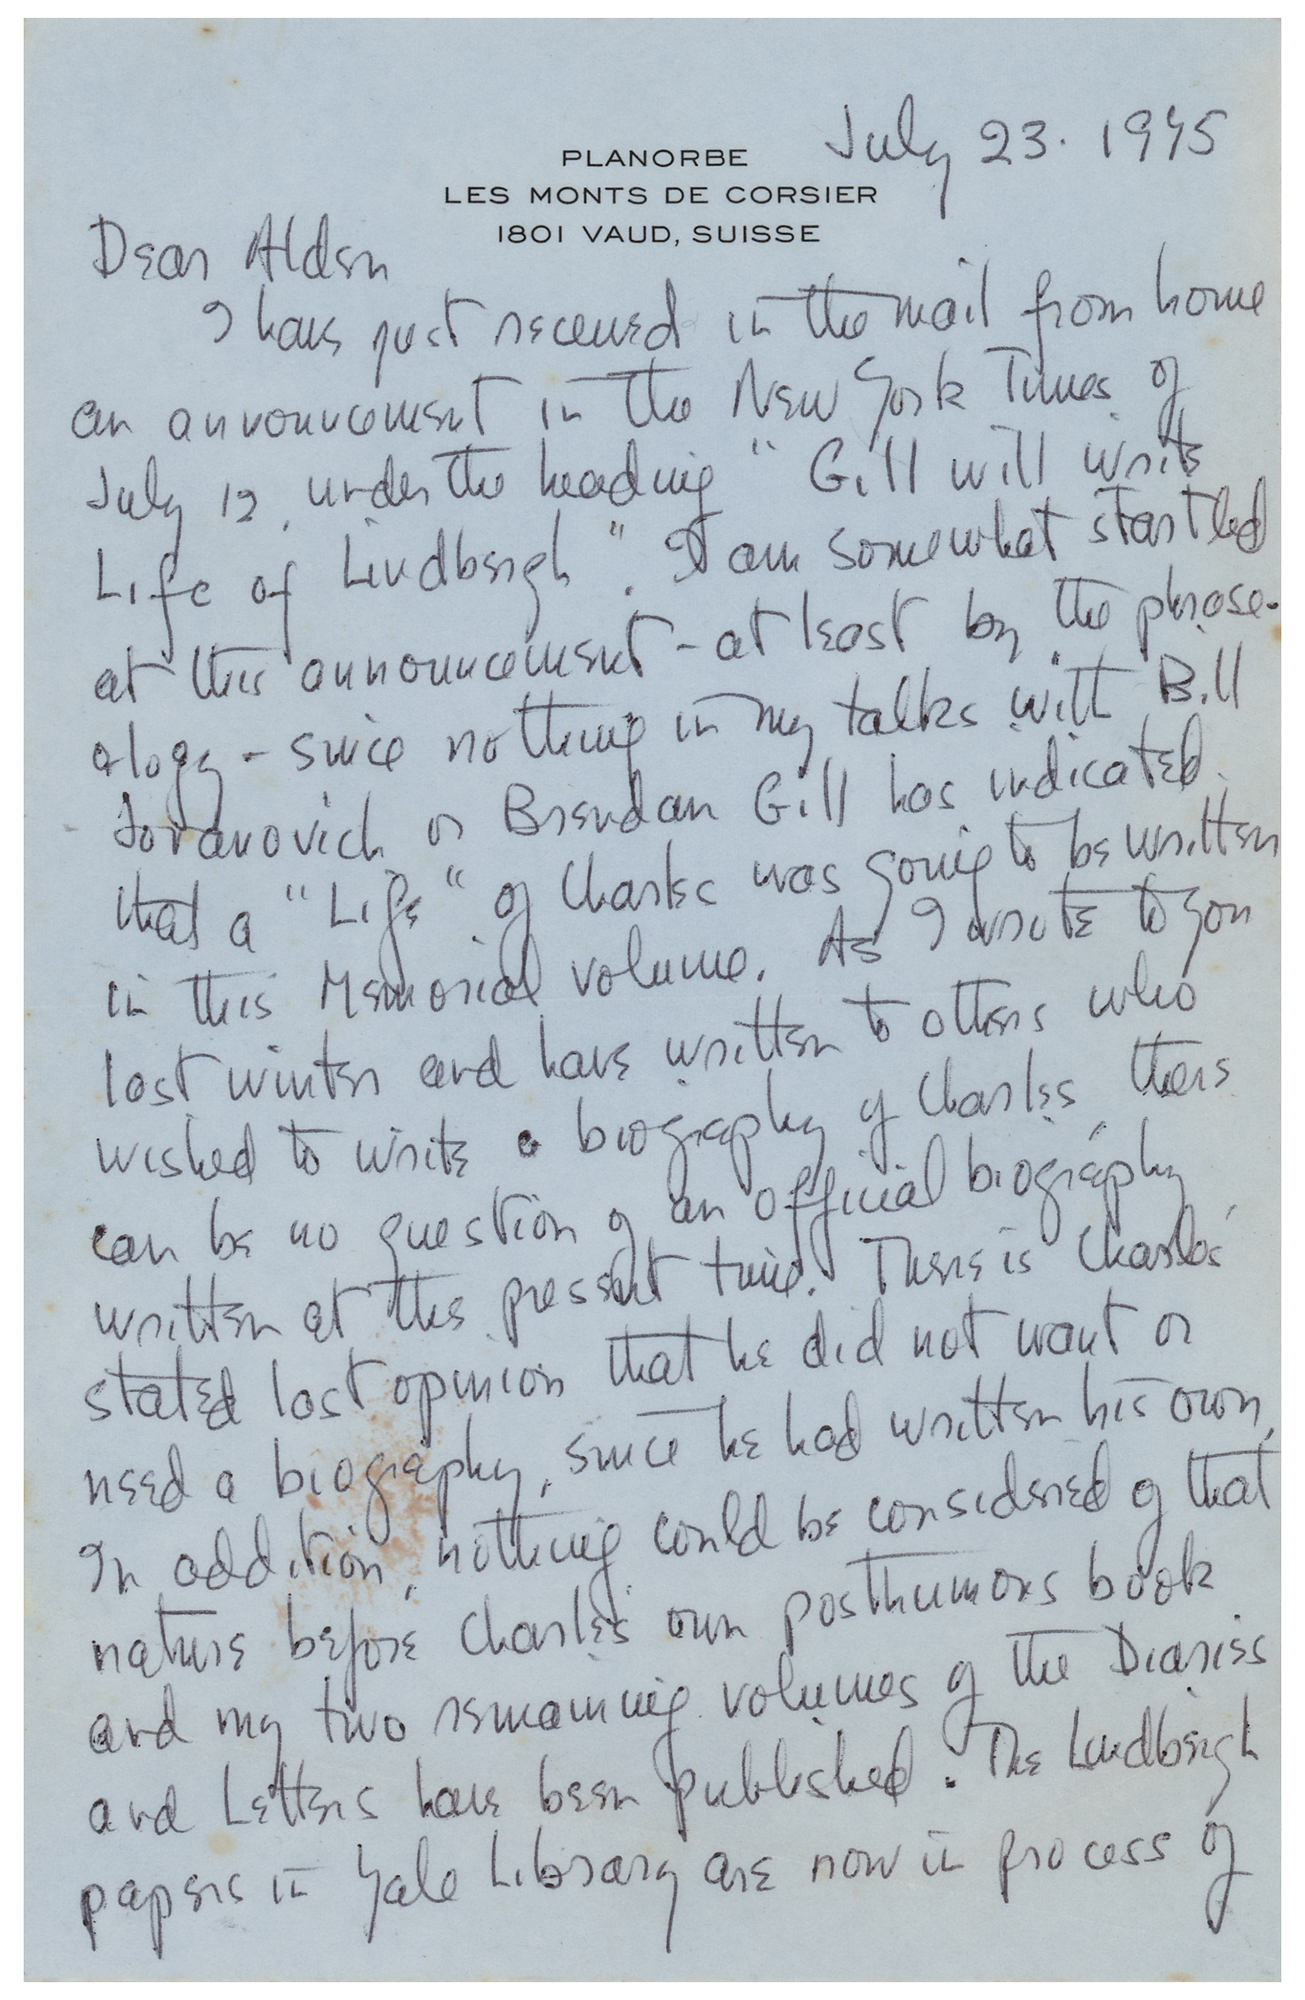 July 23. 1975
PLANORBE
LES MONTS DE CORSIER
1801 VAUD, SUISSE
Dear Alden
I have just received in the mail from home
an announcement in the New York Times of
July 12, under the heading "Gill will write
Life of Lindbergh". I am somewhat startled
at this announcement - at least by the phrase-
ology - since nothing in my talks with Bill
Jovanovich or Brendan Gill has indicated
that a "Life" of Charles was going to be written
in this Memorial volume. As I wrote to you
last winter and have written to others who
wished to write a biography of Charles, there
can be no question of an official biography,
written at the present time. There is Charles'
stated last opinion that he did not want or
need a biography, since he had written his own.
In addition, nothing could be considered of that
nature before Charles' own posthumous book
and my two remaining volumes of the Diaries
and Letters have been published. The Lindbergh
papers in Yale Library are now in process of